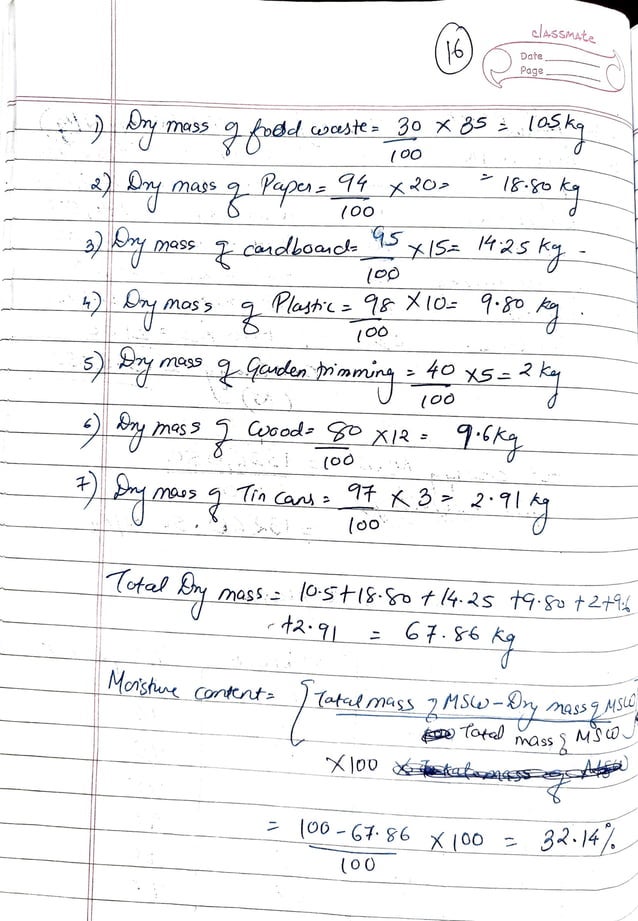 16
classmate
Date
Page
1) Dry mass of food waste = 30/100 × 35 = 10.5 kg
2) Dry mass of Paper = 94/100 × 20 = = 18.80 kg
3) Dry mass of cardboard = 95/100 × 15 = 14.25 kg -
4) Dry mass of Plastic = 98/100 × 10 = 9.80 kg.
5) Dry mass of Garden trimming = 40/100 × 5 = 2 kg
6) Dry mass of Wood = 80/100 × 12 = 9.6 kg
7) Dry mass of Tin cans = 97/100 × 3 = 2.91 kg
Total Dry mass = 10.5 + 18.80 + 14.25 + 9.80 + 2 + 9.6
+ 2.91 = 67.86 kg
Moisture content = { Total mass of MSW - Dry mass of MSW
Total mass of MSW }
× 100
= 100 - 67.86 / 100 × 100 = 32.14%